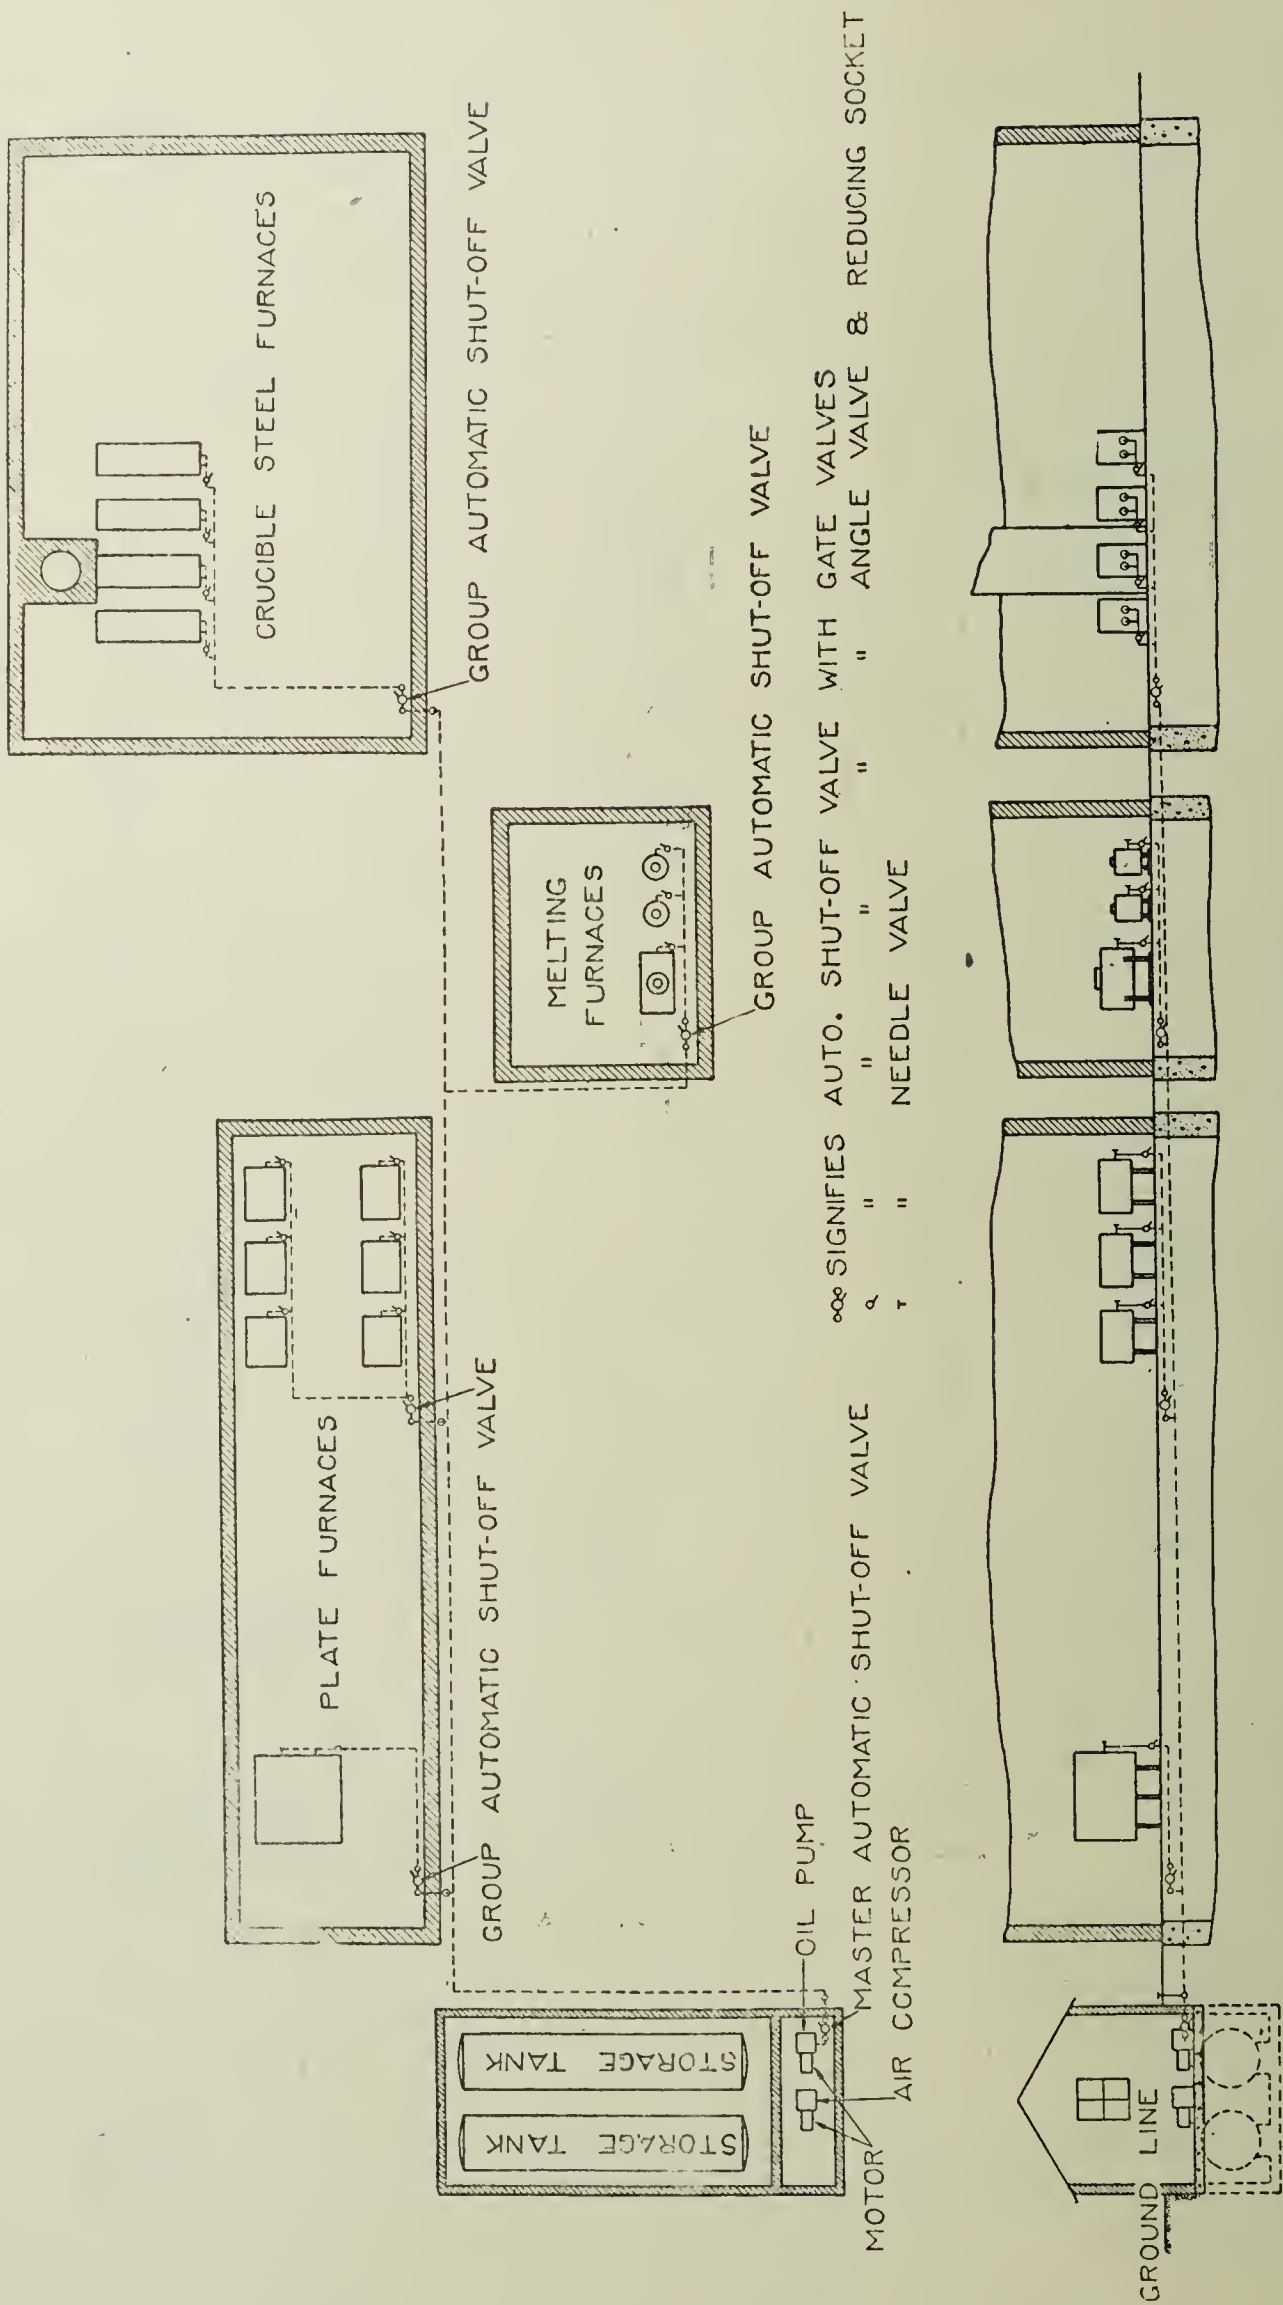 CRUCIBLE STEEL FURNACES
GROUP AUTOMATIC SHUT-OFF VALVE
MELTING
FURNACES
GROUP AUTOMATIC SHUT-OFF VALVE
PLATE FURNACES
GROUP AUTOMATIC SHUT-OFF VALVE
STORAGE TANK
STORAGE TANK
OIL PUMP
MASTER AUTOMATIC SHUT-OFF VALVE
AIR COMPRESSOR
MOTOR
SIGNIFIES AUTO. SHUT-OFF VALVE WITH GATE VALVES
" " " " " ANGLE VALVE & REDUCING SOCKET
" NEEDLE VALVE
GROUND LINE